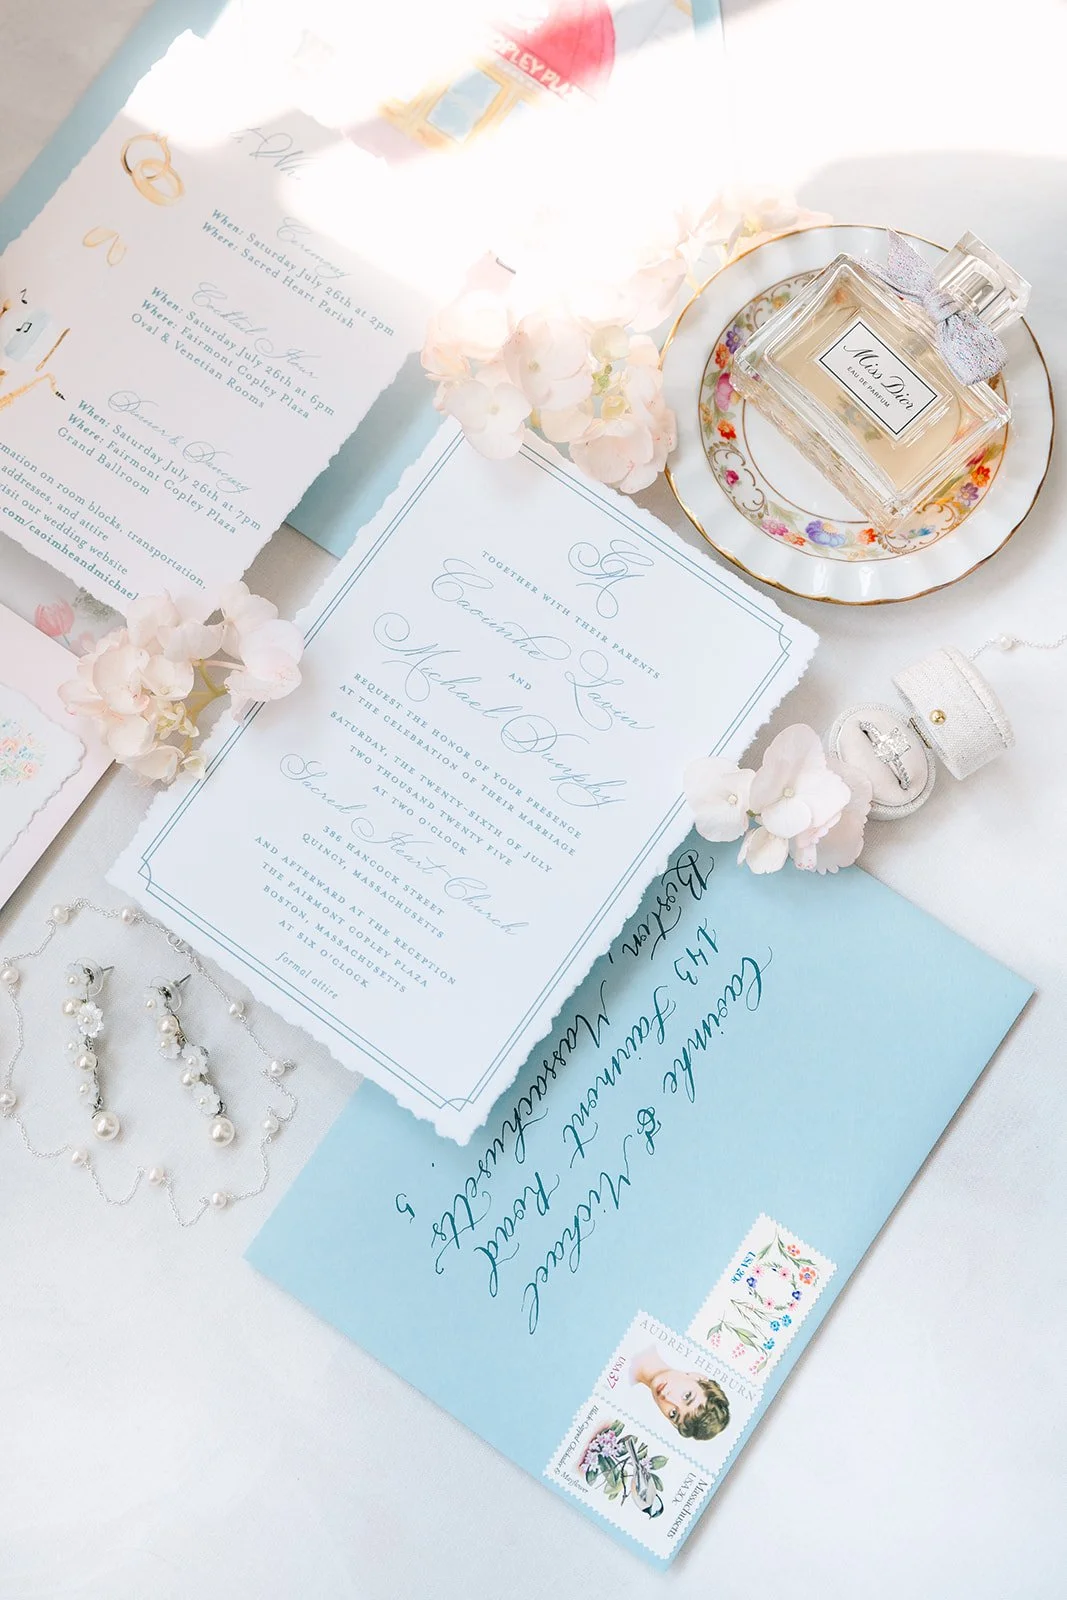 COPLEY PLA
Ceremony
When: Saturday July 26th at 2pm
Where: Sacred Heart Parish
Cocktail Hour
When: Saturday July 26th at 6pm
Where: Fairmont Copley Plaza
Oval & Venetian Rooms
Dinner & Dancing
When: Saturday July 26th at 7pm
Where: Fairmont Copley Plaza
Grand Ballroom
mation on room blocks, transportation,
addresses, and attire
visit our wedding website
.com/caoimheandmichael
Miss Dior
EAU DE PARFUM
CM
TOGETHER WITH THEIR PARENTS
Caoimhe Lavin
AND
Michael Dunphy
REQUEST THE HONOR OF YOUR PRESENCE
AT THE CELEBRATION OF THEIR MARRIAGE
SATURDAY, THE TWENTY-SIXTH OF JULY
TWO THOUSAND TWENTY FIVE
AT TWO O'CLOCK
Sacred Heart Church
386 HANCOCK STREET
QUINCY, MASSACHUSETTS
AND AFTERWARD AT THE RECEPTION
THE FAIRMONT COPLEY PLAZA
BOSTON, MASSACHUSETTS
AT SIX O'CLOCK
formal attire
Caoimhe & Michael
143 Fairmont Road
Boston, Massachusetts
USA 20c
AUDREY HEPBURN
USA 37
Black Capped Chickadee & Mayflower
Massachusetts
USA 20c